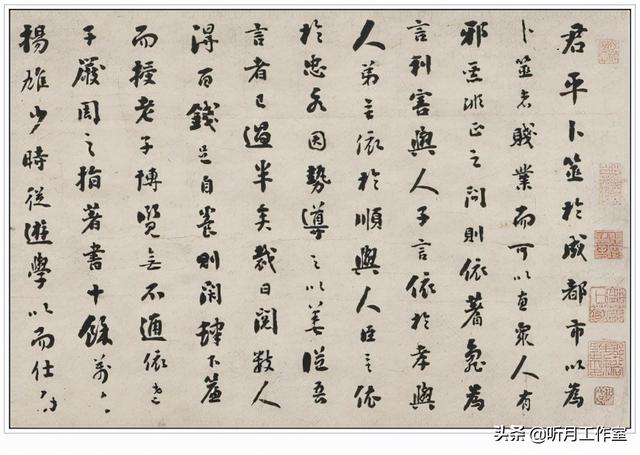 君平卜筮於成都市以為
卜筮者賤業而可以惠眾人有
邪惡非正之問則依蓍龜為
言利害與人子言依於孝與
人弟言依於順與人臣言依
於忠各因勢導之以善從吾
言者已過半矣裁日閱數人
得百錢足自養則閉肆下簾
而授老子博覽無不通依老
子嚴周之指著書十餘萬言
楊雄少時從遊學以而仕
头条 @听月工作室